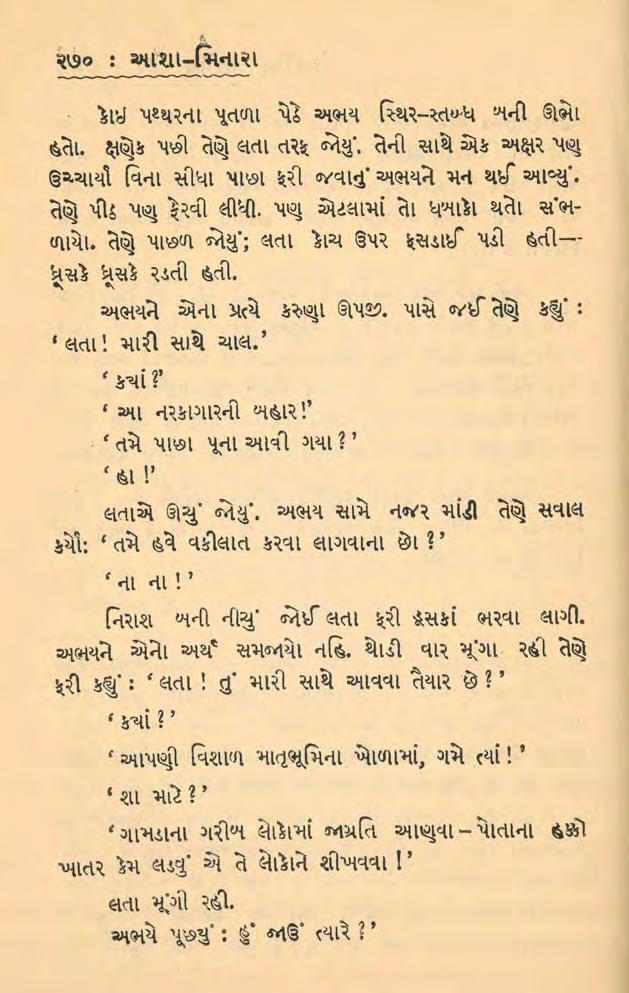 ૨૭૦ : આશા-મિનારા
કોઇ પથ્થરના પૂતળા પેઠે અભય સ્થિર-સ્તબ્ધ બની ઊભો
હતો. ક્ષણેક પછી તેણે લતા તરફ જોયું. તેની સાથે એક અક્ષર પણ
ઉચ્ચાર્યા વિના સીધા પાછા ફરી જવાનું અભયને મન થઈ આવ્યું.
તેણે પીઠ પણ ફેરવી લીધી. પણ એટલામાં તો ધબાકો થતો સંભ-
ળાયો. તેણે પાછળ જોયું; લતા કોચ ઉપર ફસડાઈ પડી હતી—
ધ્રૂસકે ધ્રૂસકે રડતી હતી.
અભયને એના પ્રત્યે કરુણા ઊપજી. પાસે જઈ તેણે કહ્યું :
‘ લતા! મારી સાથે ચાલ.’
‘ કયાં?’
‘ આ નરકાગારની બહાર!’
‘ તમે પાછા પૂના આવી ગયા ?’
‘ હા !’
લતાએ ઊચું જોયું. અભય સામે નજર માંડી તેણે સવાલ
કર્યો: ‘ તમે હવે વકીલાત કરવા લાગવાના છો ?’
‘ ના ના !’
નિરાશ બની નીચું જોઈ લતા ફરી ડૂસકાં ભરવા લાગી.
અભયને એનો અર્થ સમજાયો નહિ. થોડી વાર મૂંગા રહી તેણે
ફરી કહ્યું : ‘ લતા ! તું મારી સાથે આવવા તૈયાર છે ?’
‘ કયાં ?’
‘ આપણી વિશાળ માતૃભૂમિના ખોળામાં, ગમે ત્યાં !’
‘ શા માટે ?’
‘ ગામડાના ગરીબ લોકોમાં જાગ્રતિ આણવા – પોતાના હક્કો
ખાતર કેમ લડવું એ તે લોકોને શીખવવા !’
લતા મૂંગી રહી.
અભયે પૂછ્યું : હું જાઉં ત્યારે ?’